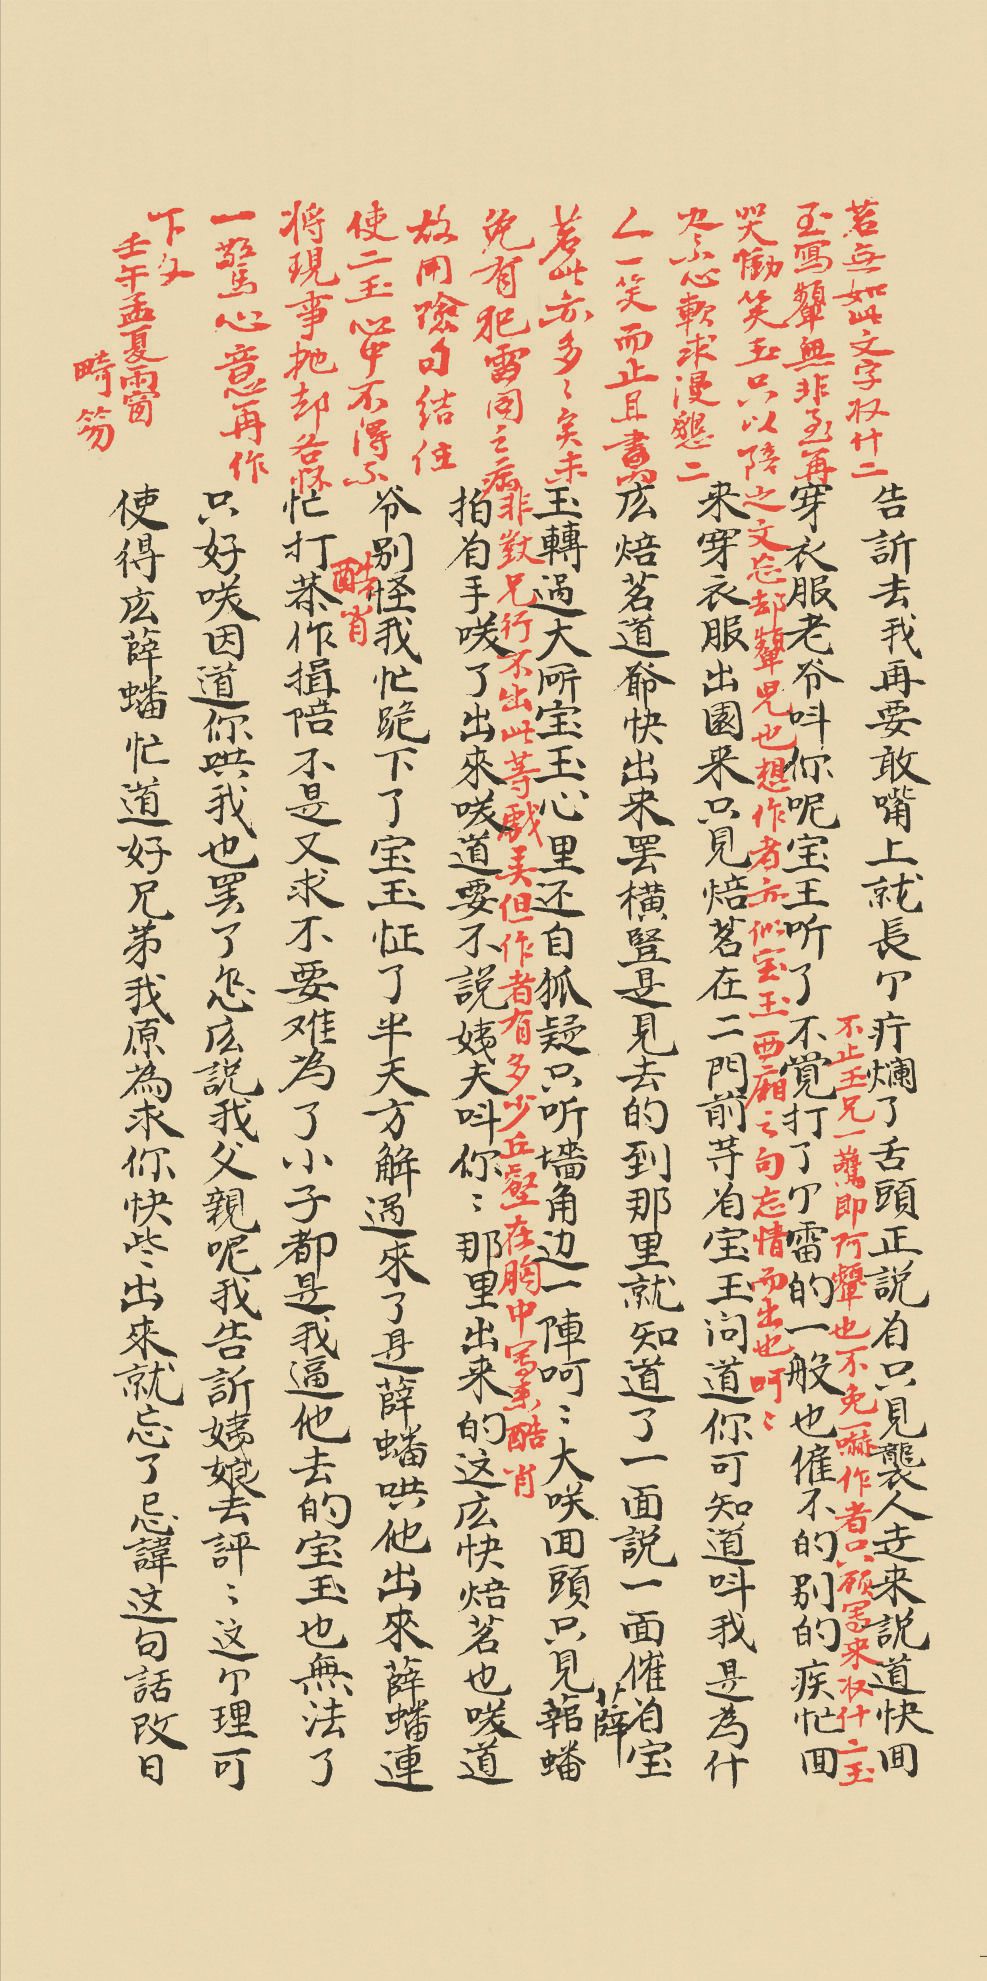 若無如此文字收什二
玉寫顰無非至再
哭慟笑玉只以陪
尽小心軟求漫懇二
人一笑而止且書內
若此亦多多矣未
免有犯雷同之病
故用險句結住
使二玉心中不得不
將現事抛却各怀
一驚心意再作
下文
壬午孟夏雨窗
畸笏
告訴去我再要敢嘴上就長个疔爛了舌頭正説着只見襲人走来説道快囬
不止玉兄一驚即阿顰也不免一嚇作者只顾寫来收什二玉
穿衣服老爷呌你呢宝玉听了不觉打了个雷的一般也僱不的别的疾忙囬
之文忘却顰兒也想作者亦似宝玉西廂之句忘情而出也呵ミ
来穿衣服出園来只見焙茗在二門前等着宝玉问道你可知道呌我是為什
庅焙茗道爺快出来罢橫豎是見去的到那里就知道了一面説一面催着宝
玉轉過大所宝玉心里还自狐疑只听墙角边一陣呵ミ大咲囬頭只見薛蟠
薛
非獃兄行不出此等戲弄但作者有多少丘壑在胸中寫来酷肖
拍着手咲了出來咲道要不説姨夫呌你ミ那里出来的这庅快焙茗也咲道
爷别怪我忙跪下了宝玉怔了半天方解過來了是薛蟠哄他出來薛蟠連
酷肖
忙打恭作揖陪不是又求不要难為了小子都是我逼他去的宝玉也無法了
只好咲因道你哄我也罢了怎庅説我父親呢我告訴姨娘去評ミ这个理可
使得庅薛蟠忙道好兄弟我原為求你快些ミ出來就忘了忌諱这句話改日